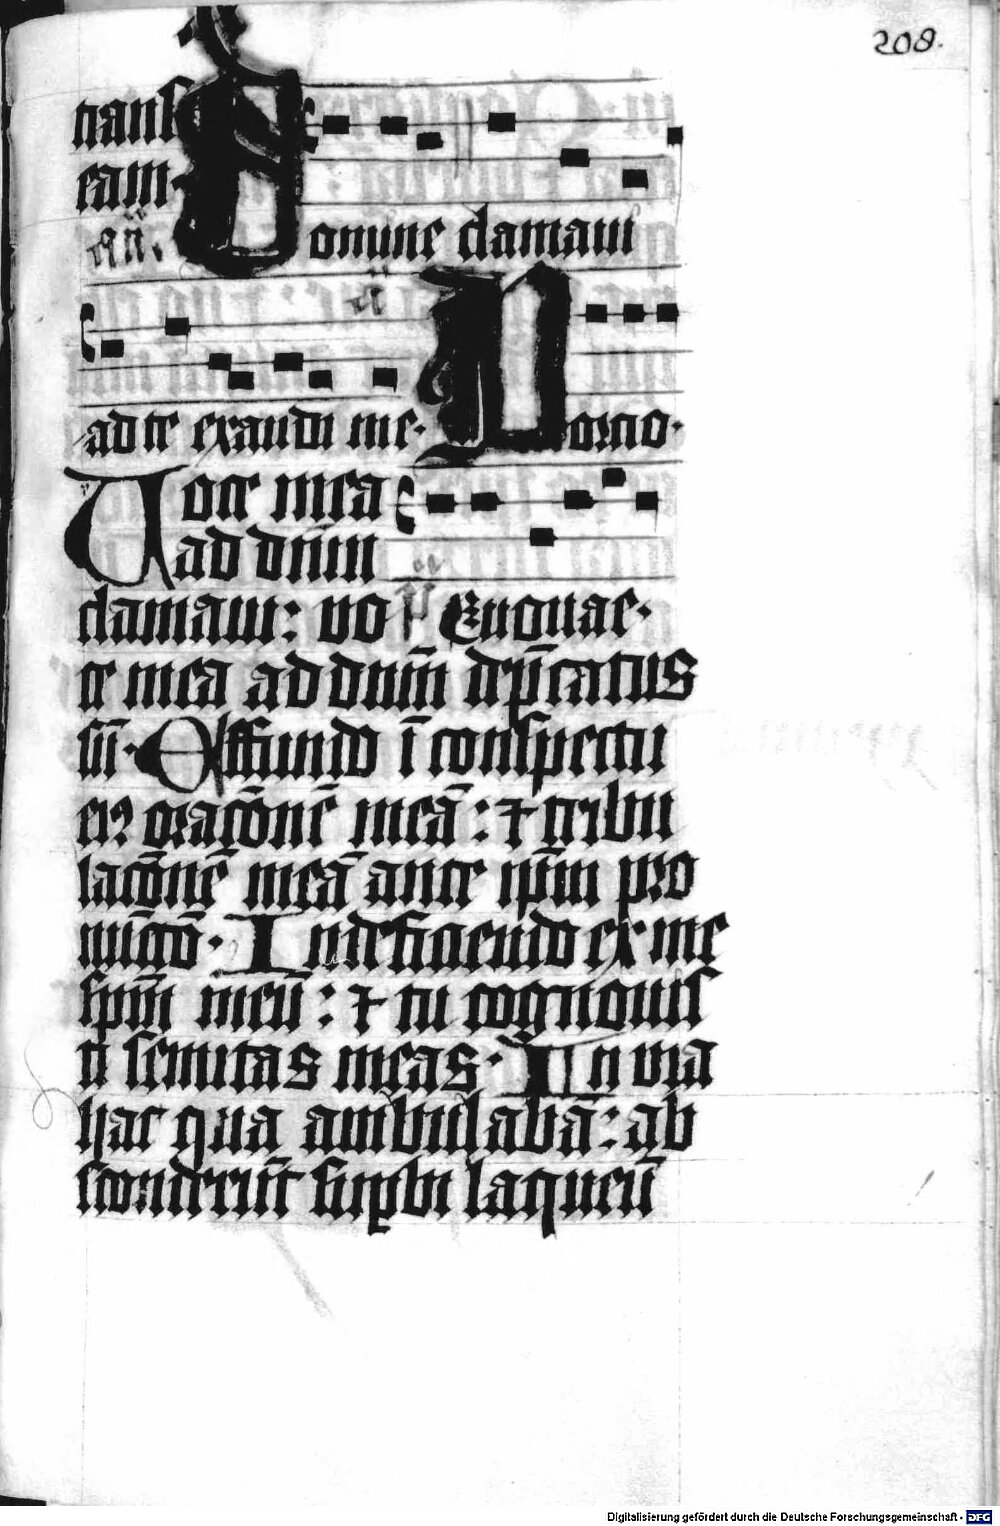 208.
trans
eam
an̄.
Domine clamaui
ad te exaudi me· Portio·
Uoce mea
ad dn̄m
clamaui: uo Euouae·
ce mea ad dn̄m dep̄catus
sū· Effundo ī conspectu
eiꝰ orac̄onē meā: ⁊ tribu
lac̄onē meā ante ip̄m pro
nūc̄o· In deficiendo ex me
sp̄m meū: ⁊ tu cognouis
ti semitas meas· In uia
hac qua ambulabā: ab
sconderūt supbi laqueū
Digitalisierung gefördert durch die Deutsche Forschungsgemeinschaft - DFG